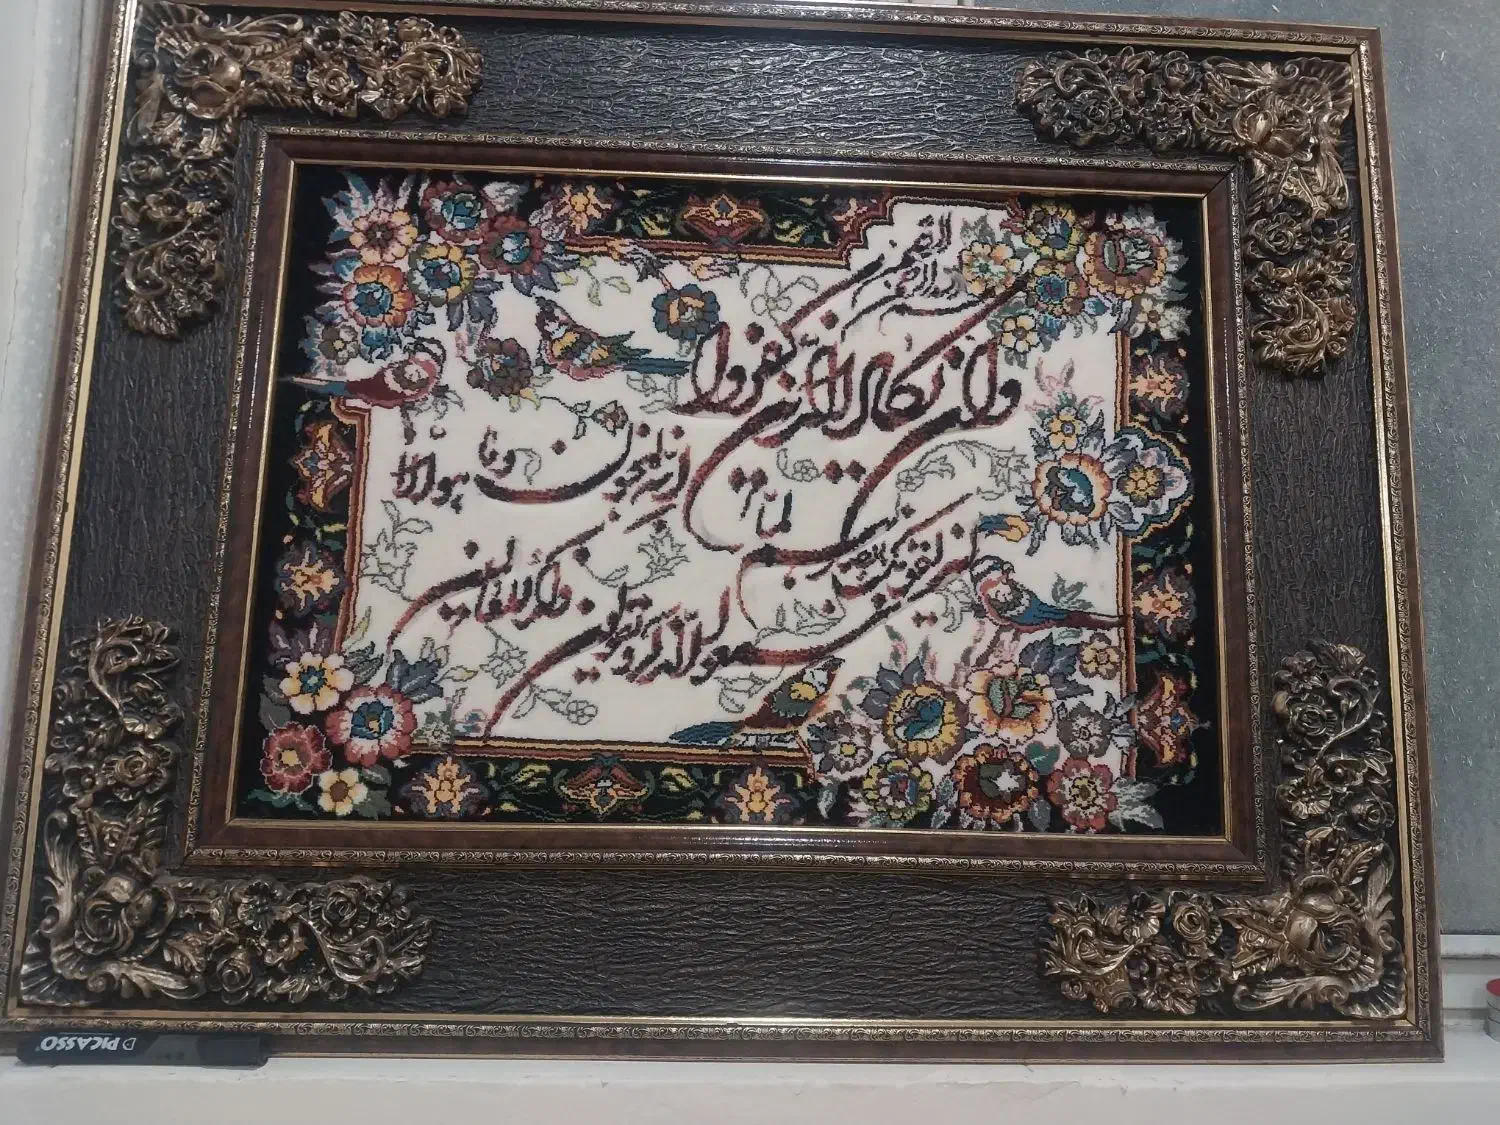 الرحمن
وان یکاد الذین کفروا
لیزلقونک بابصارهم لما
سمعوا الذکر و یقولون
انه لمجنون وما هو الا
ذکر للعالمین
PICASSO